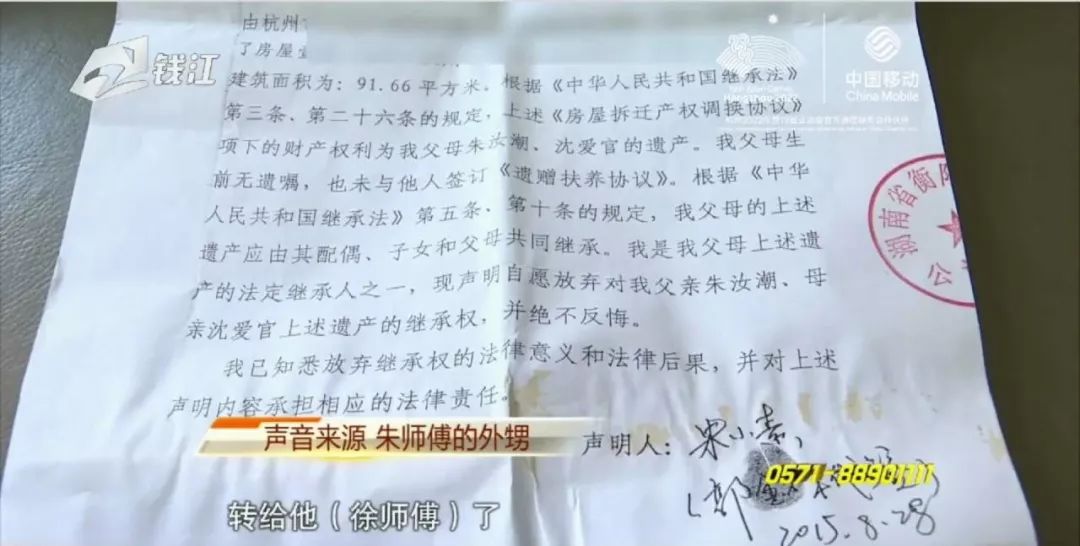 由杭州
了房屋
钱江
建筑面积为：91.66平方米。根据《中华人民共和国继承法》
Hangzhou 2022
中国移动
China Mobile
第三条、第二十六条的规定，上述《房屋拆迁产权调换协议》
项下的财产权利为我父母朱汝潮、沈爱官的遗产。我父母生
前无遗嘱，也未与他人签订《遗赠扶养协议》。根据《中华
人民共和国继承法》第五条、第十条的规定，我父母的上述
遗产应由其配偶、子女和父母共同继承。我是我父母上述遗
产的法定继承人之一，现声明自愿放弃对我父亲朱汝潮、母
亲沈爱官上述遗产的继承权，并绝不反悔。
湖南省衡
公
我已知悉放弃继承权的法律意义和法律后果，并对上述
声明内容承担相应的法律责任。
声音来源 朱师傅的外甥
声明人：
0571-88901111
转给他（徐师傅）了
2015.8.28